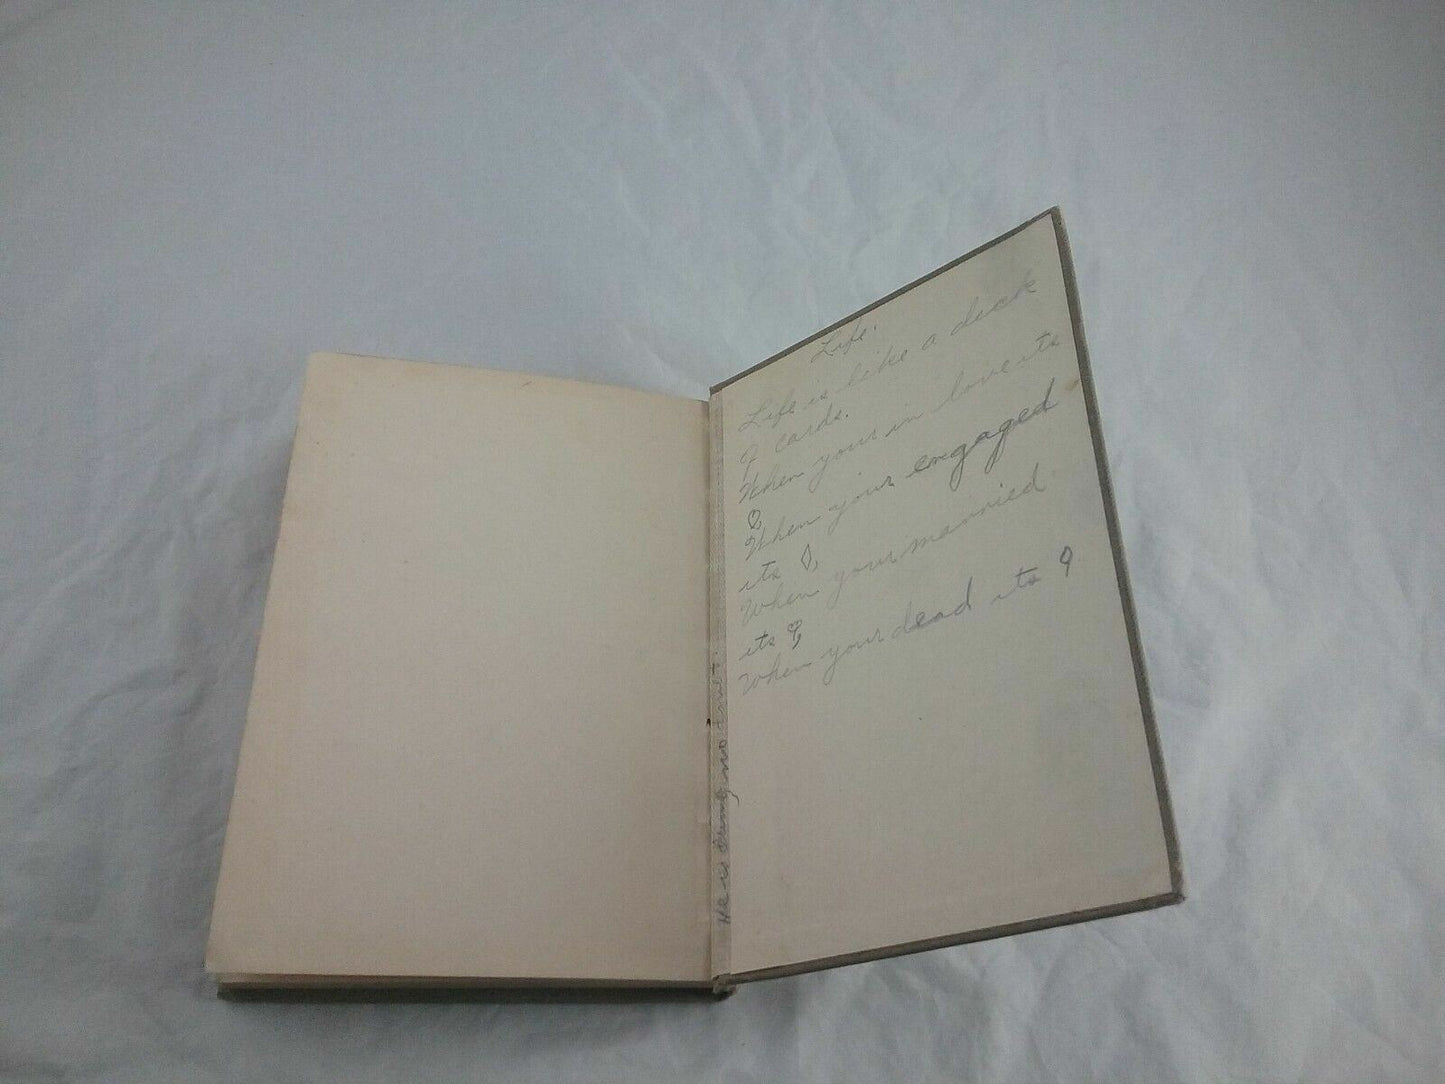 Life.
Life is like a deck
of cards.
When your in love its
♡,
When your engaged
its ◊,
When your married
its ♧,
When your dead its